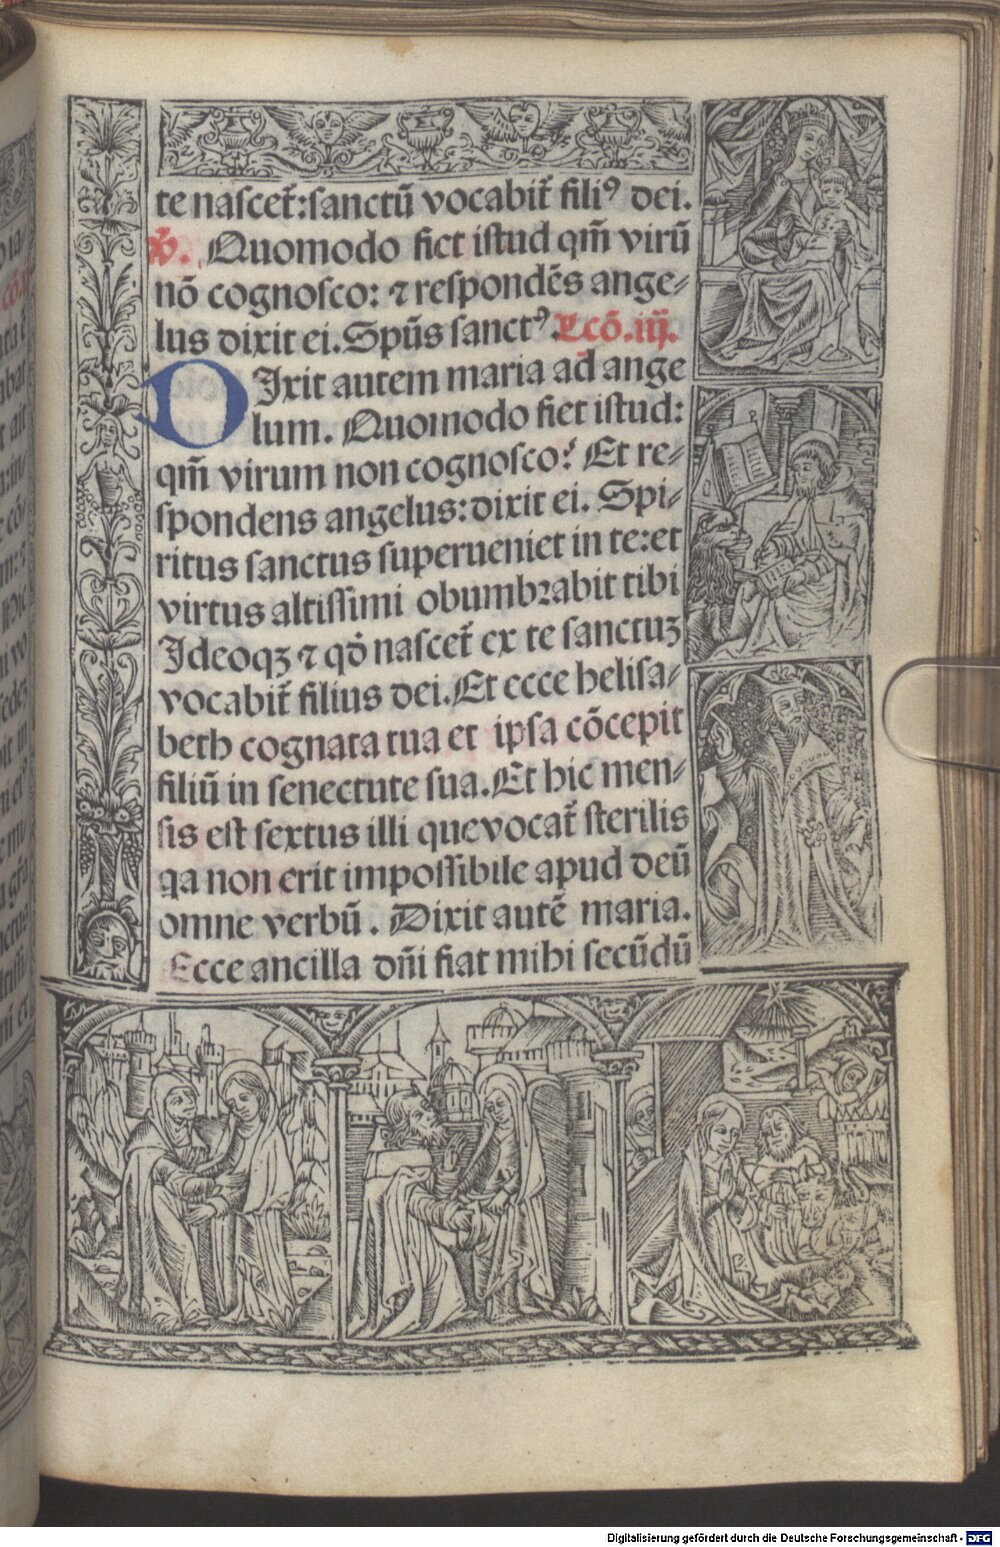 te naſcet̃:ſanctũ vocabit̃ fili⁹ dei.
℣. Quomodo fiet iſtud qm̃ virũ
nõ cognoſco: ⁊ reſpondẽs ange⸗
lus dixit ei. Spũs ſanct⁹. Lcõ.iij.
DIxit autem maria ad ange
lum. Quomodo fiet iſtud:
qm̃ virum non cognoſco? Et re⸗
ſpondens angelus:dixit ei. Spi⸗
ritus ſanctus ſuperueniet in te:et
virtus altiſſimi obumbꝛabit tibi
Ideoqꝫ ⁊ qð naſcet̃ ex te ſanctuꝫ
vocabit̃ filius dei. Et ecce heliſa⸗
beth cognata tua et ipſa cõcepit
filiũ in ſenectute ſua. Et hic men⸗
ſis eſt ſextus illi que vocat̃ ſterilis
qa non erit impoſſibile apud deũ
omne verbũ. Dixit autẽ maria.
Ecce ancilla dñi fiat mihi ſecũdũ
Digitalisierung gefördert durch die Deutsche Forschungsgemeinschaft - DFG